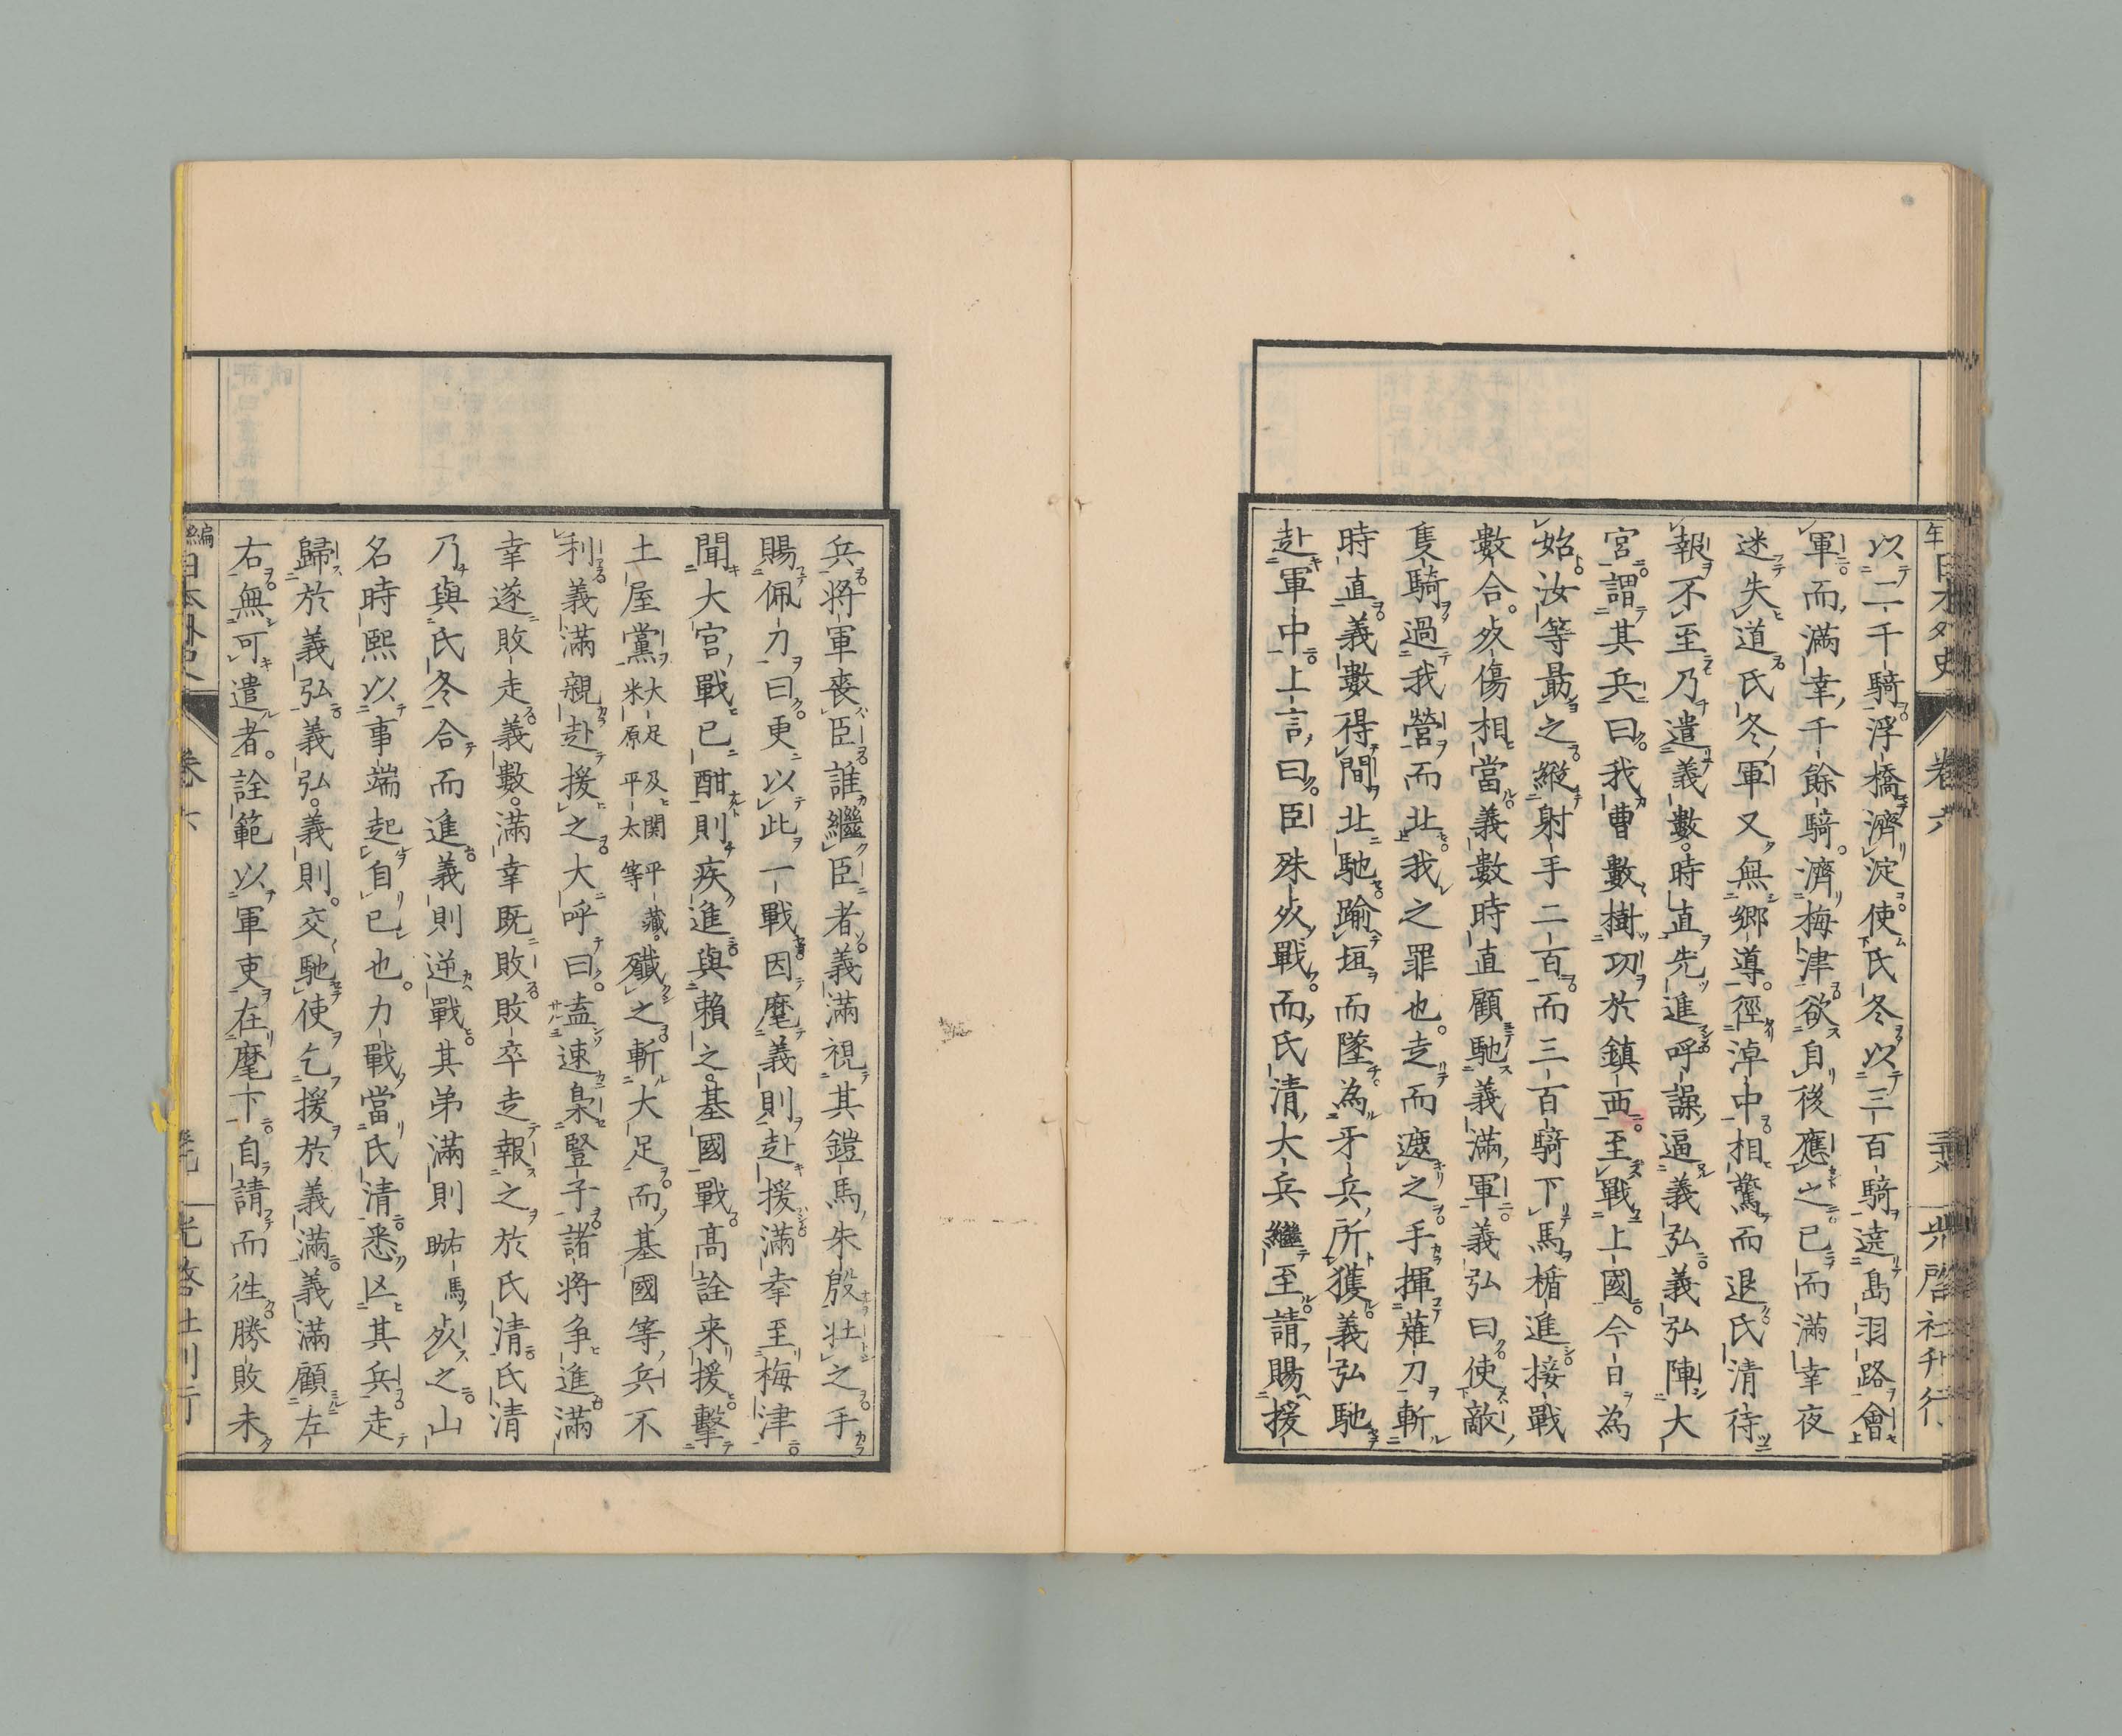 以二千騎浮橋濟淀使氏冬以三百騎遶島羽路會
軍而滿幸千餘騎濟梅津欲自後應之已而滿幸夜
迷失道氏冬軍又無鄉導徑淖中相驚而退氏清待
報不至乃遣義數時直先進呼譟逼義弘義弘陣大
宮謂其兵曰我曹數樹功於鎮西至戰上國今日為
始汝等勗之縱射手二百而三百騎下馬楯進接戰
數合死傷相當義數時直顧馳義滿軍義弘曰使敵
隻騎過我營而北我之罪也走而遮之手揮薙刀斬
時直義數得間北馳踰垣而墜為牙兵所獲義弘馳
赴軍中上言曰臣殊死戰而氏清大兵繼至請賜援
兵將軍喪臣誰繼臣者義滿視其鎧馬朱殷壯之手
賜佩刀曰更以此一戰因麾義則赴援滿幸至梅津
聞大宮戰已酣則疾進與賴之基國戰高詮来援擊
土屋黨大足及関平藏米原平太等殲之斬大足而基國等兵不
利義滿親赴援之大呼曰盍速梟豎子諸將争進滿
幸遂敗走義數滿幸既敗敗卒走報之於氏清氏清
乃與氏冬合而進義則逆戰其弟滿則右馬助死之山
名時熙以事端起自己也力戰當氏清悉亡其兵走
歸於義弘義弘義則交馳使乞援於義滿義滿顧左
右無可遣者詮範以軍吏在麾下自請而往勝敗未